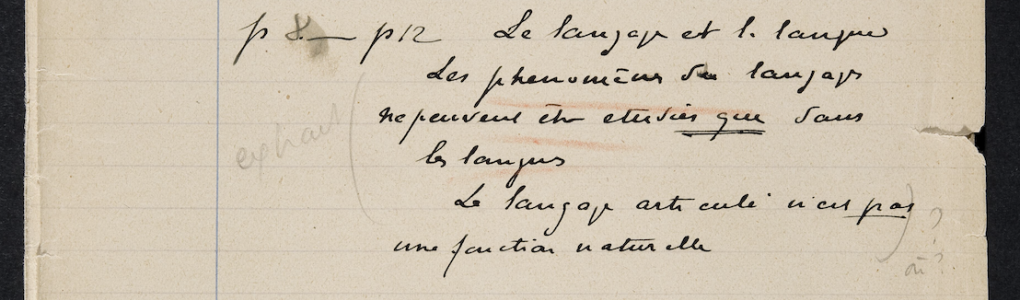 p 8 — p 12 Le langage et la langue
Les phenomènes du langage
ne peuvent être etudiés que dans
les langues
Le langage articulé n'est pas
une fonction naturelle
?
où ?